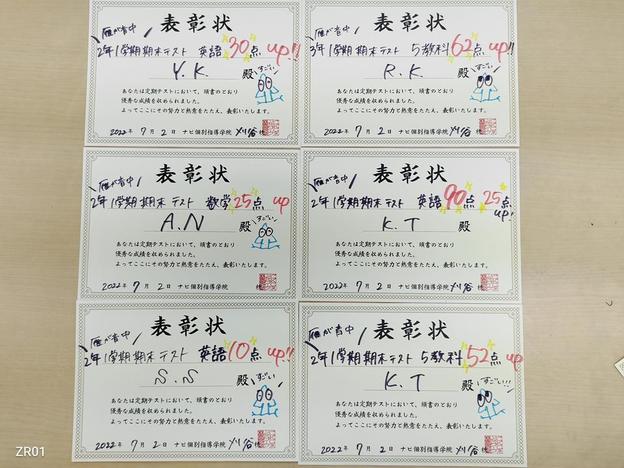 雁が音中
表彰状
2年1学期期末テスト 英語30点 up!!
Y.K. 殿
すごい
あなたは定期テストにおいて、頭書のとおり
優秀な成績を収められました。
よってここにその努力と熱意をたたえ、表彰いたします。
2022年 7月 2日 ナビ個別指導学院 刈谷校
雁が音中
表彰状
3年1学期期末テスト 5教科62点 up!!
R.K. 殿
すごい
あなたは定期テストにおいて、頭書のとおり
優秀な成績を収められました。
よってここにその努力と熱意をたたえ、表彰いたします。
2022年 7月 2日 ナビ個別指導学院 刈谷校
雁が音中
表彰状
2年1学期期末テスト 数学25点 up
A.N 殿
すごい
あなたは定期テストにおいて、頭書のとおり
優秀な成績を収められました。
よってここにその努力と熱意をたたえ、表彰いたします。
2022年 7月 2日 ナビ個別指導学院 校
雁が音中
表彰状
2年1学期期末テスト 英語90点 25点 up!
K.T 殿
あなたは定期テストにおいて、頭書のとおり
優秀な成績を収められました。
よってここにその努力と熱意をたたえ、表彰いたします。
2022年 7月 2日 ナビ個別指導学院 刈谷校
雁が音中
表彰状
2年1学期期末テスト 英語10点 up!!
S.S 殿
すごい
あなたは定期テストにおいて、頭書のとおり
優秀な成績を収められました。
よってここにその努力と熱意をたたえ、表彰いたします。
2022年 7月 2日 ナビ個別指導学院 刈谷校
雁が音中
表彰状
2年1学期期末テスト 5教科52点 up
K.T 殿
すごい!!!
あなたは定期テストにおいて、頭書のとおり
優秀な成績を収められました。
よってここにその努力と熱意をたたえ、表彰いたします。
2022年 7月 2日 ナビ個別指導学院 刈谷校
ZR01